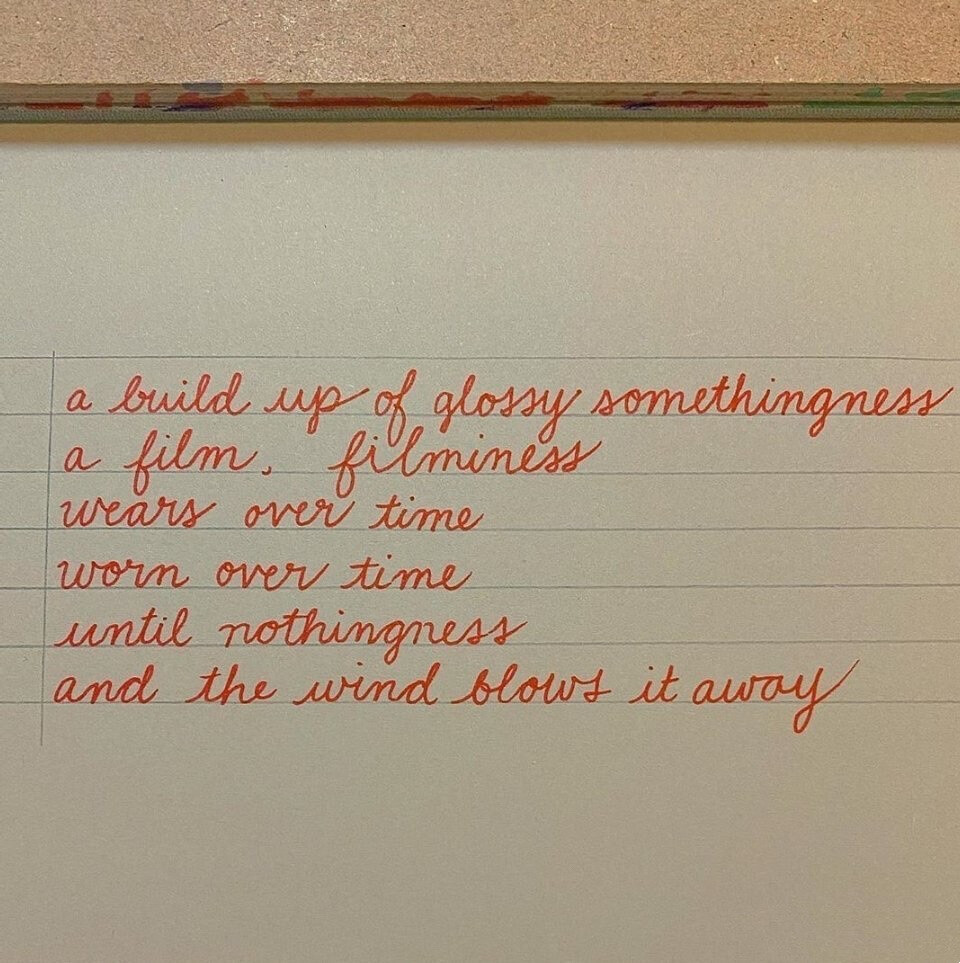 a build up of glossy somethingness
a film, filminess
wears over time
worn over time
until nothingness
and the wind blows it away